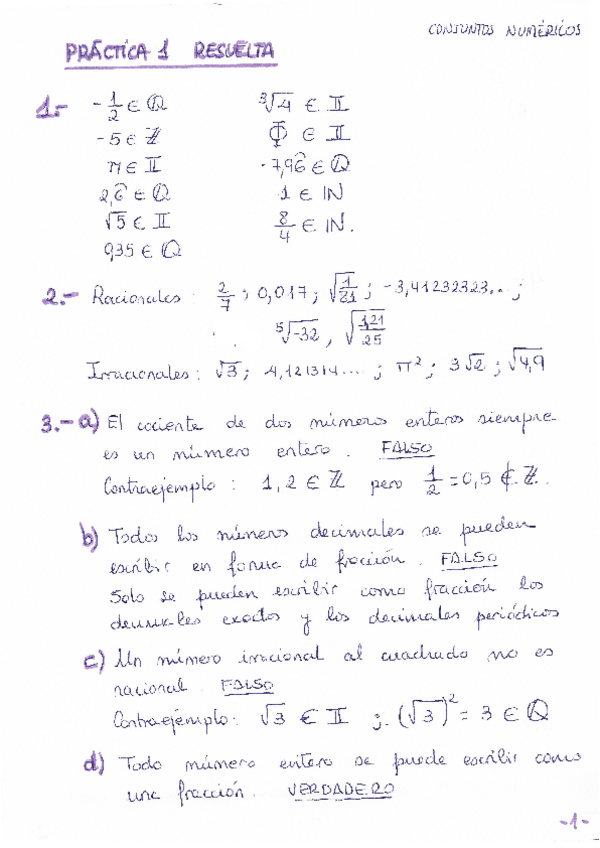 CONJUNTOS NUMÉRICOS
PRÁCTICA 1 RESUELTA
1.- -1/2 ∈ ℚ ∛4 ∈ 𝕀
-5 ∈ ℤ Φ ∈ 𝕀
π ∈ 𝕀 -7,96̂ ∈ ℚ
2,6̂ ∈ ℚ 1 ∈ ℕ
√5 ∈ 𝕀 8/4 ∈ ℕ.
0,35 ∈ ℚ
2.- Racionales: 2/7 ; 0,017 ; √(1/81) ; -3,41232323... ;
⁵√-32 , √(1,21/25)
Irracionales: √3 ; 4,121314... ; π² ; 3√2 ; √4,9
3.- a) El cociente de dos números enteros siempre
es un número entero. FALSO
Contraejemplo : 1, 2 ∈ ℤ pero 1/2 = 0,5 ∉ ℤ.
b) Todos los números decimales se pueden
escribir en forma de fracción. FALSO
Solo se pueden escribir como fracción los
decimales exactos y los decimales periódicos
c) Un número irracional al cuadrado no es
racional. FALSO
Contraejemplo: √3 ∈ 𝕀 ; (√3)² = 3 ∈ ℚ
d) Todo número entero se puede escribir como
una fracción. VERDADERO
-1-